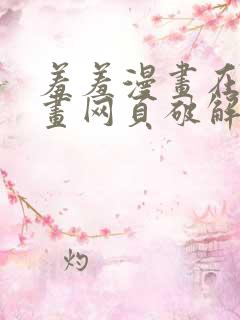 羞羞漫畫在
畫网页破解
灼